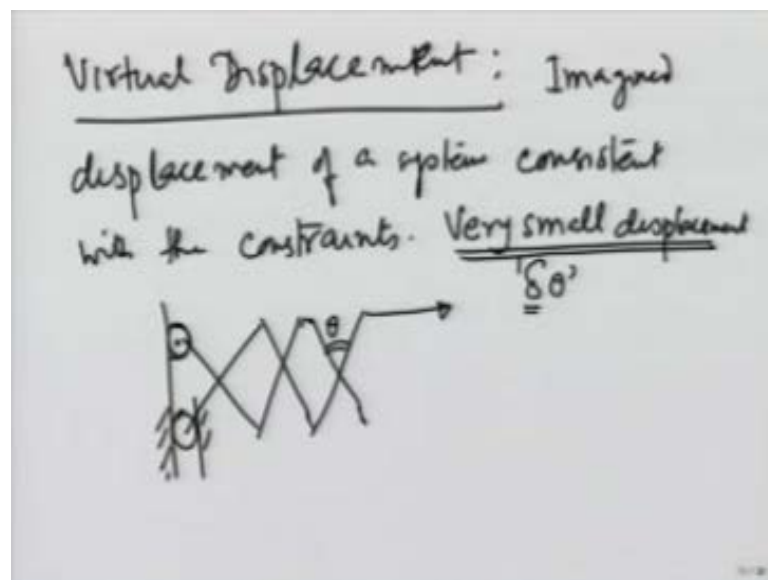 Virtual Displacement: Imagined
displacement of a system consistent
with the constraints. Very small displacement
'δθ'
θ